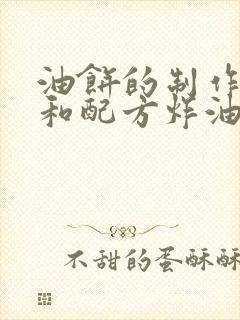 油餅的制作
和配方炸油
不甜的蛋酥酥